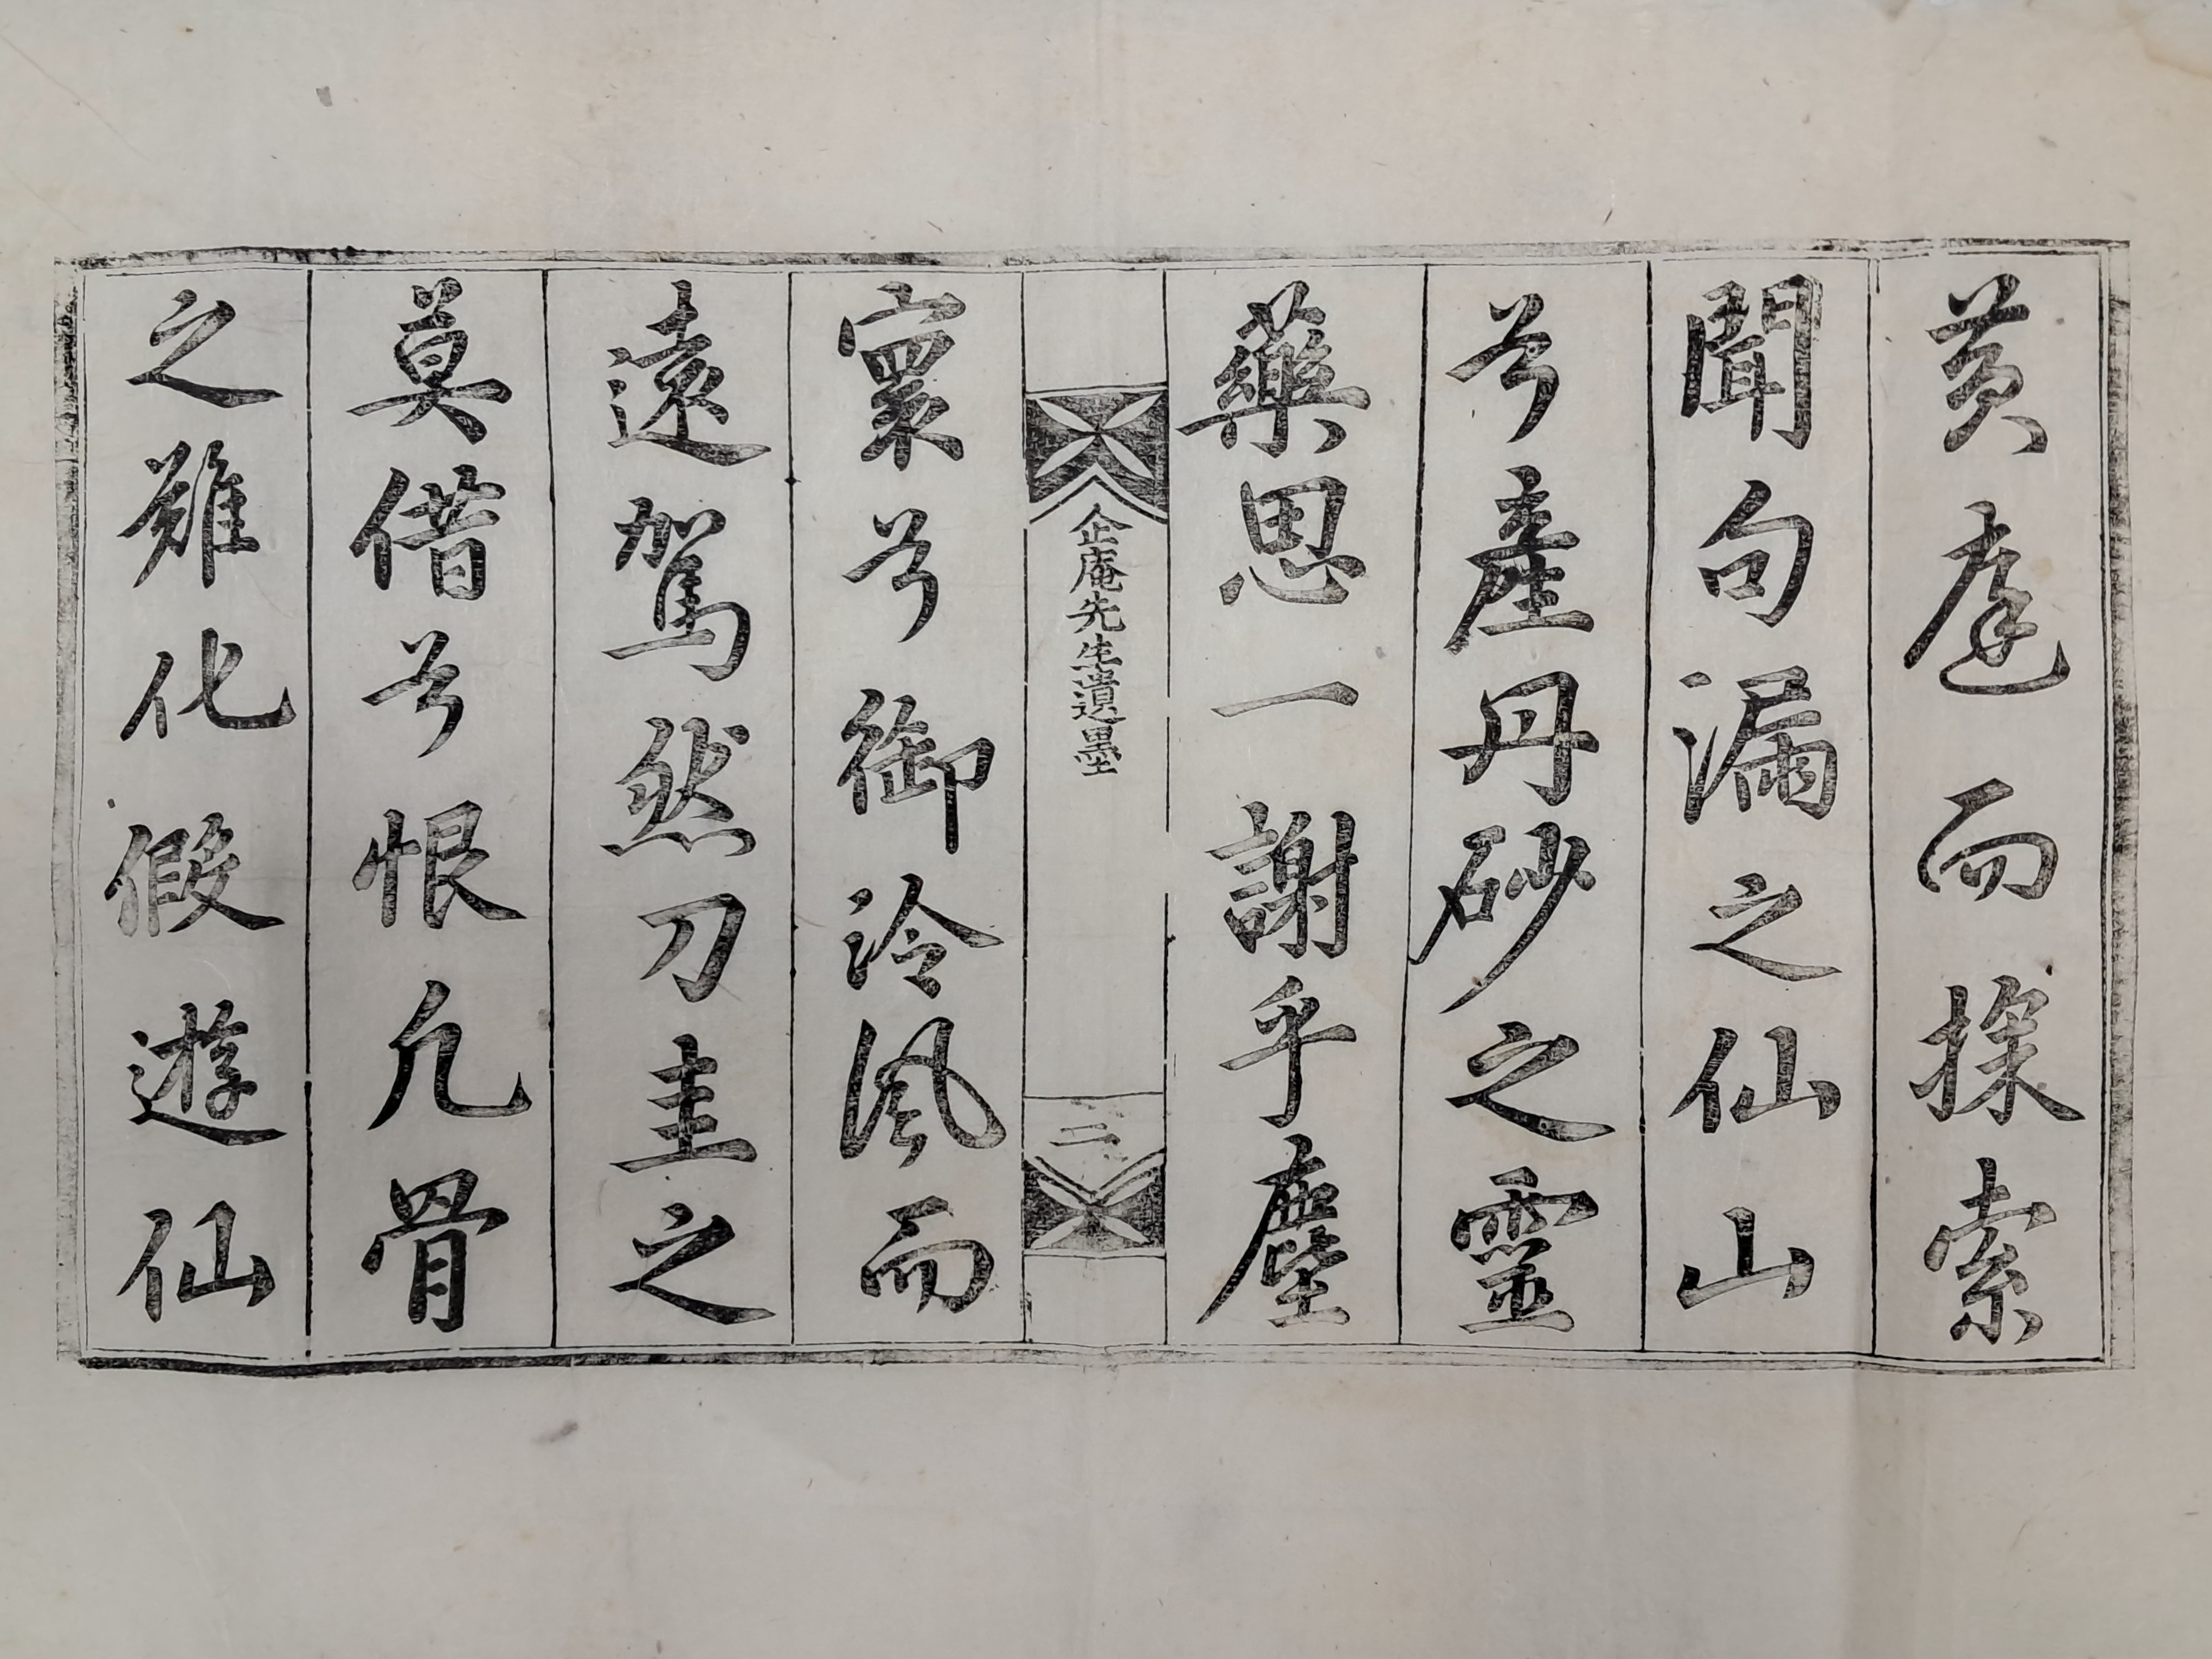 黃庭而探索
聞句漏之仙山
兮產丹砂之靈
藥思一謝乎塵
企庵先生遺墨
二
寰兮御泠風而
遠駕然刀圭之
莫借兮恨凡骨
之難化假遊仙